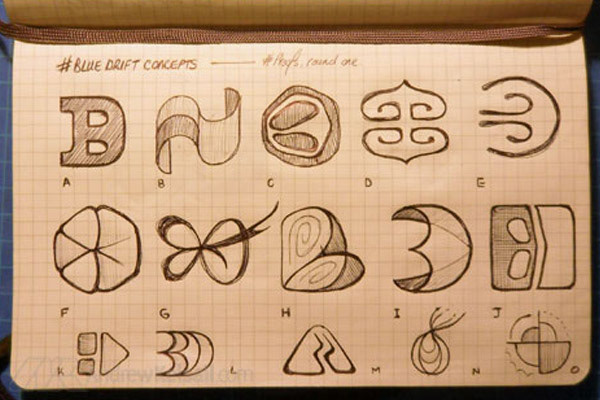 #BLUE DRIFT CONCEPTS —— #Proofs, round one
B
A B C D E
F G H I J
K L M N O
AndrewKelsall.com